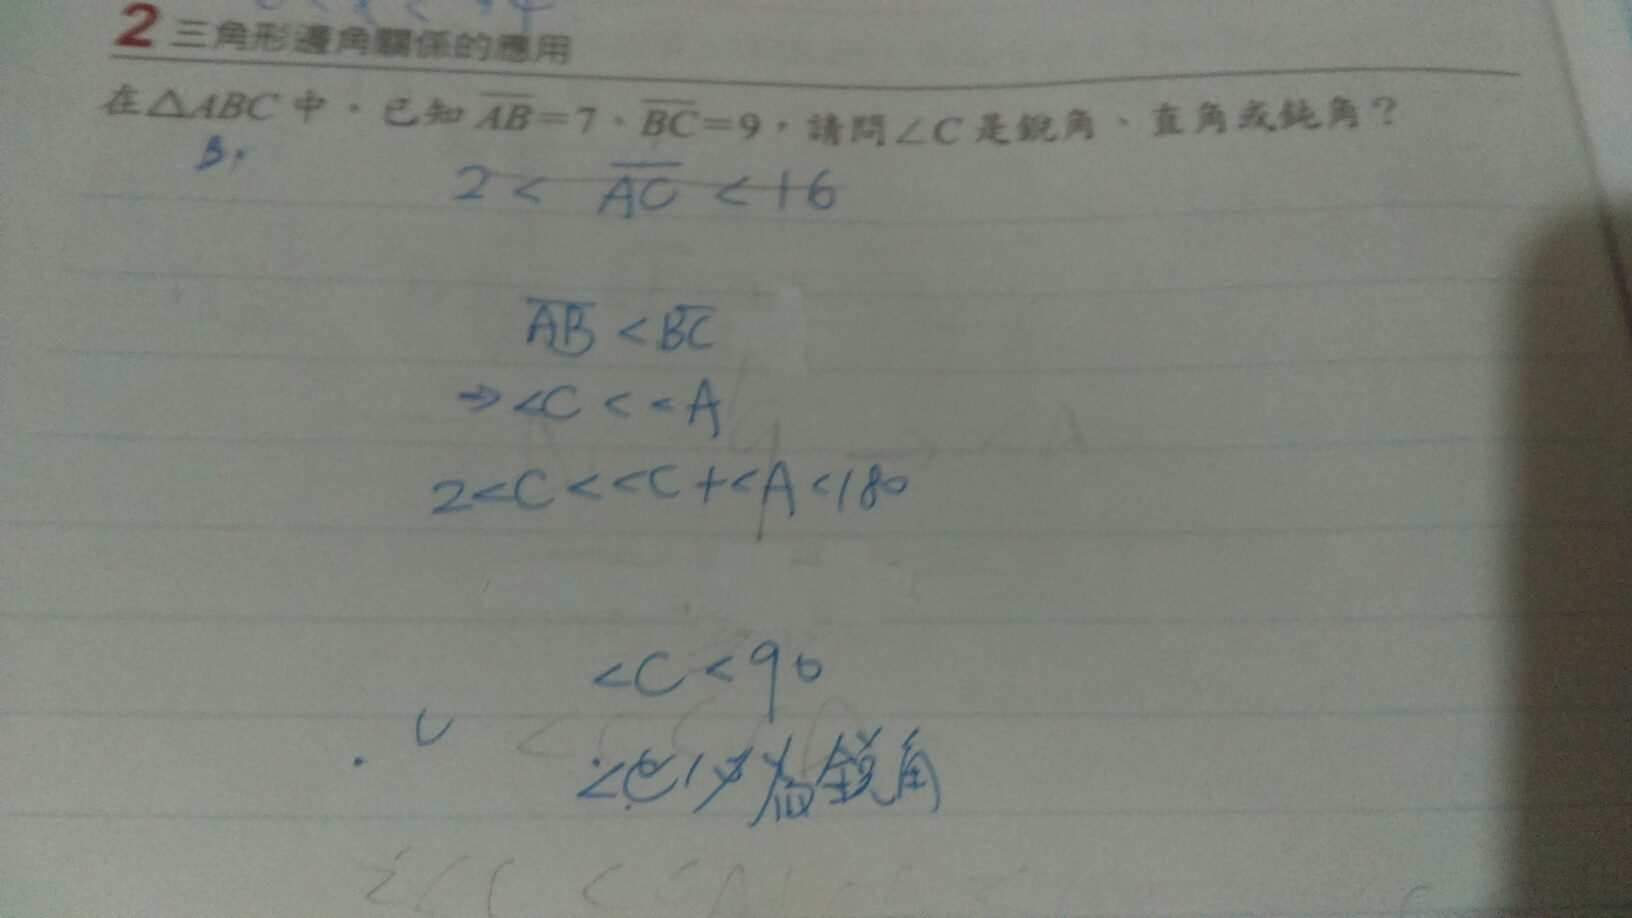 2 三角形邊角關係的應用
在△ABC中，已知 AB=7、BC=9，請問∠C是銳角、直角或鈍角？
B,
2 < AC < 16
AB < BC
⇒ <C < <A
2<C < <C + <A < 180
<C < 90
∴<C必為銳角